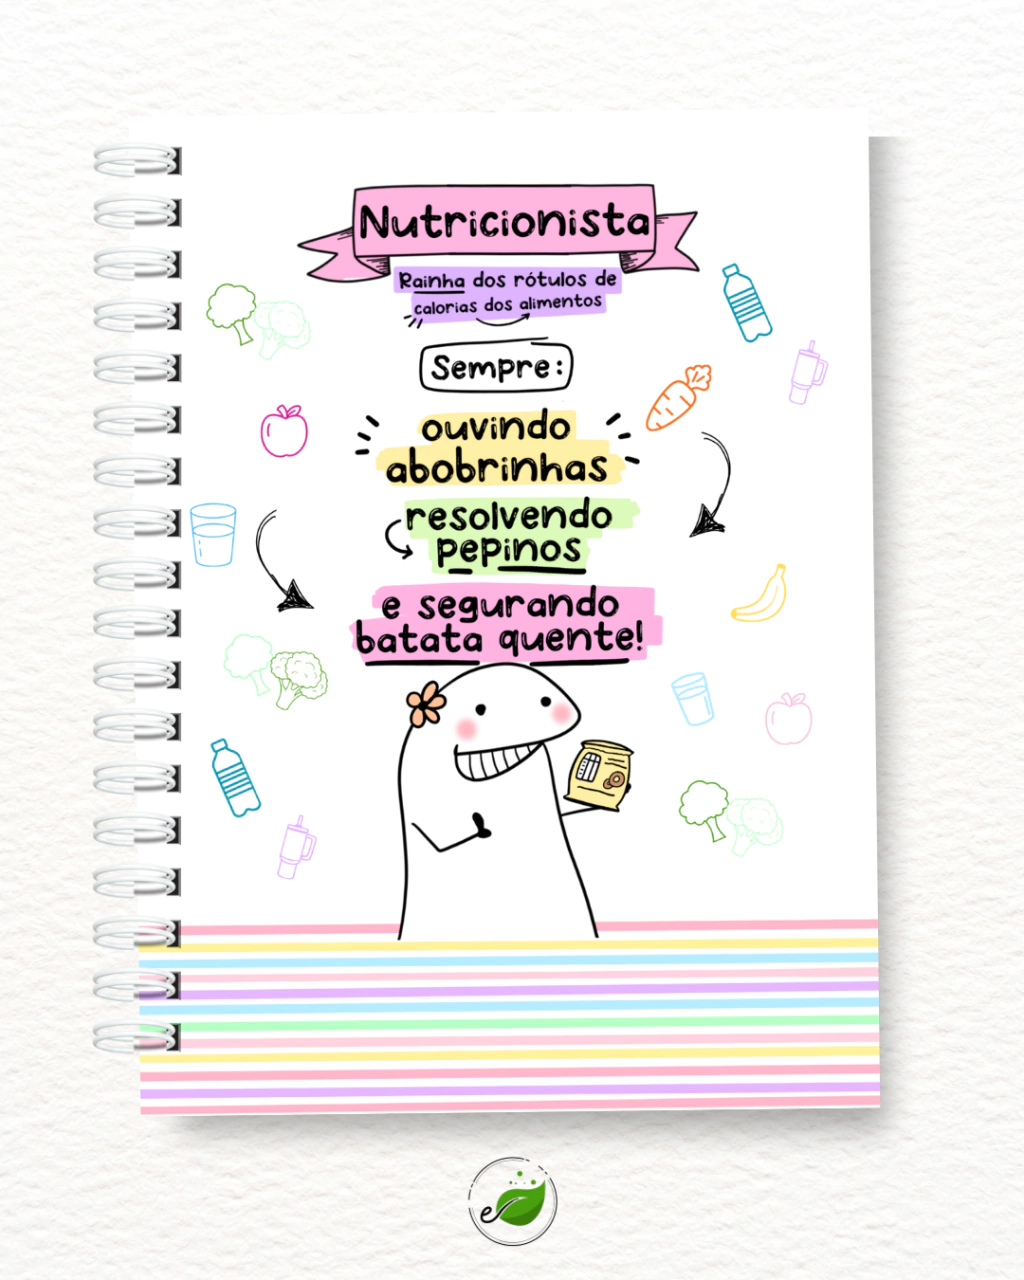 Nutricionista
Rainha dos rótulos de
calorias dos alimentos
Sempre:
ouvindo
abobrinhas
resolvendo
pepinos
e segurando
batata quente!
e